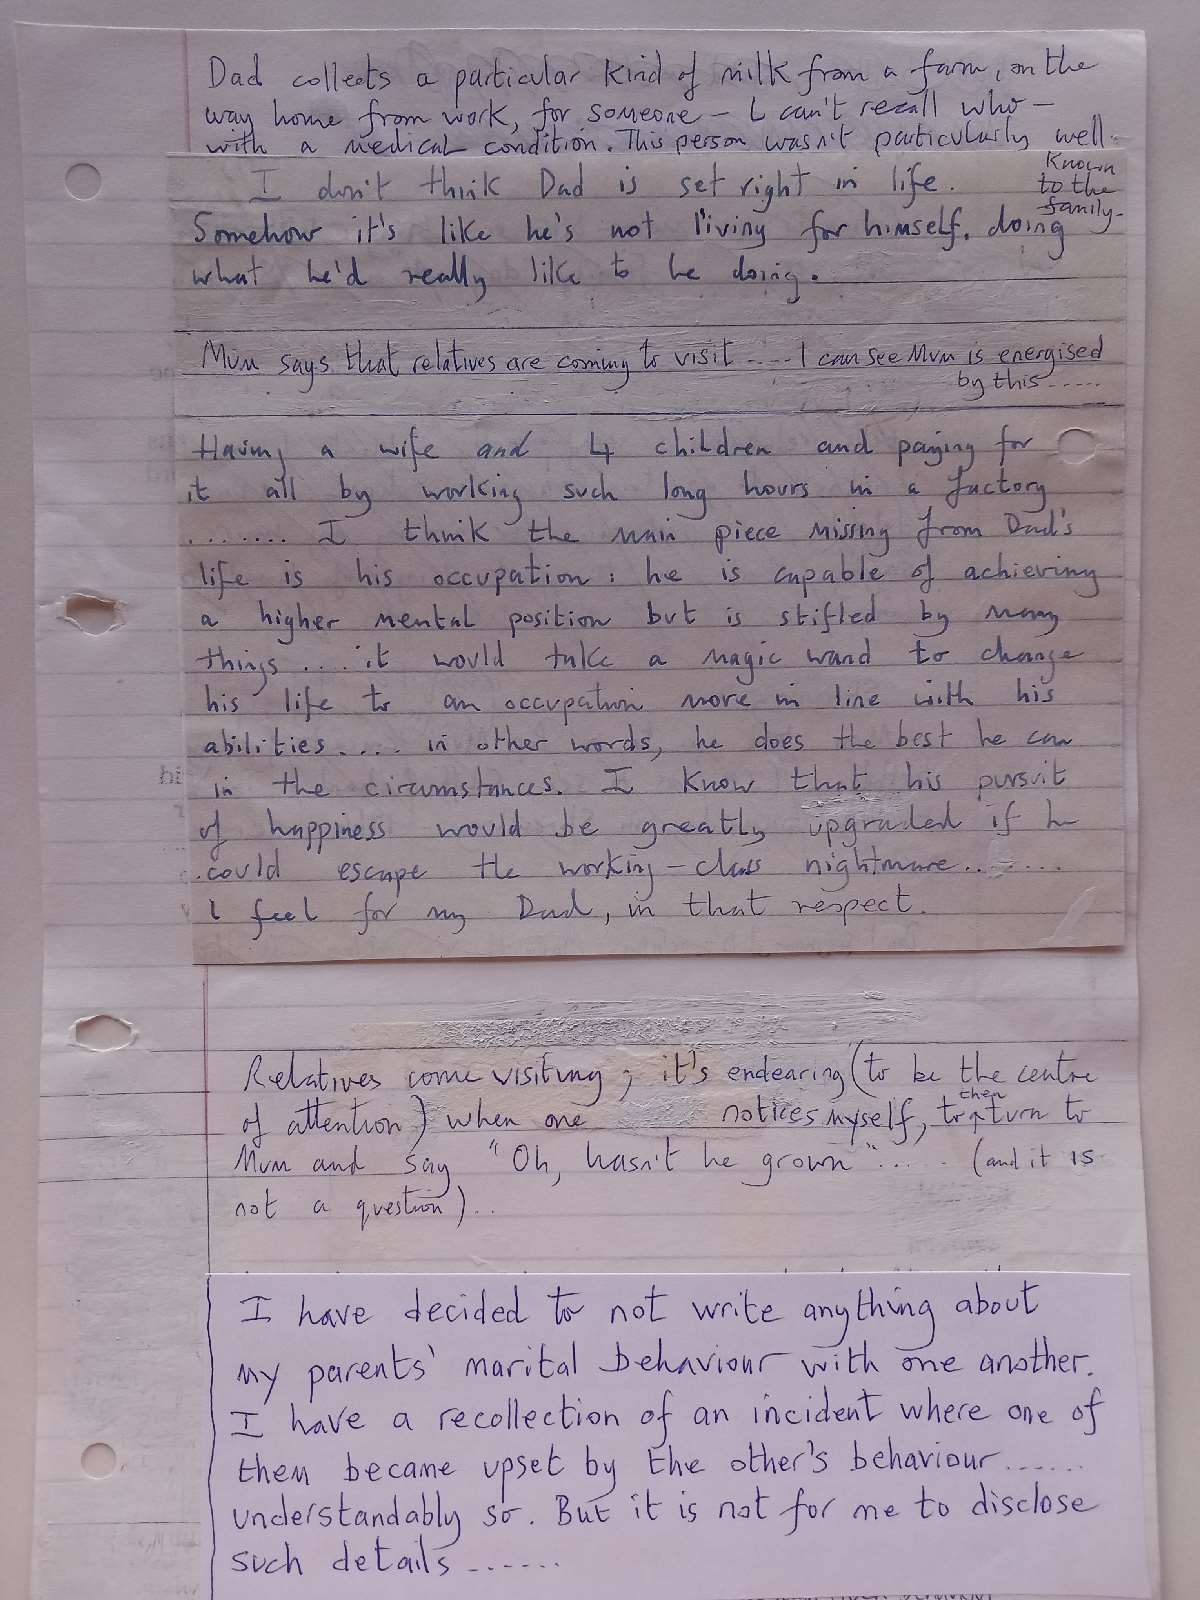 Dad collects a particular kind of milk from a farm, on the
way home from work, for someone – I can't recall who –
with a medical condition. This person wasn't particularly well
known
to the
family.
I don't think Dad is set right in life.
Somehow it's like he's not living for himself, doing
what he'd really like to be doing.
Mum says that relatives are coming to visit ..... I can see Mum is energised
by this......
Having a wife and 4 children and paying for
it all by working such long hours in a factory
....... I think the main piece missing from Dad's
life is his occupation: he is capable of achieving
a higher mental position but is stifled by many
things .... it would take a magic wand to change
his life to an occupation more in line with his
abilities..... in other words, he does the best he can
in the circumstances. I know that his pursuit
of happiness would be greatly upgraded if he
could escape the working-class nightmare........
I feel for my Dad, in that respect.
Relatives come visiting; it's endearing (to be the centre
of attention) when one notices myself, to then turn to
Mum and say "Oh, hasn't he grown"..... (and it is
not a question)..
I have decided to not write anything about
my parents' marital behaviour with one another.
I have a recollection of an incident where one of
them became upset by the other's behaviour......
understandably so. But it is not for me to disclose
such details.......